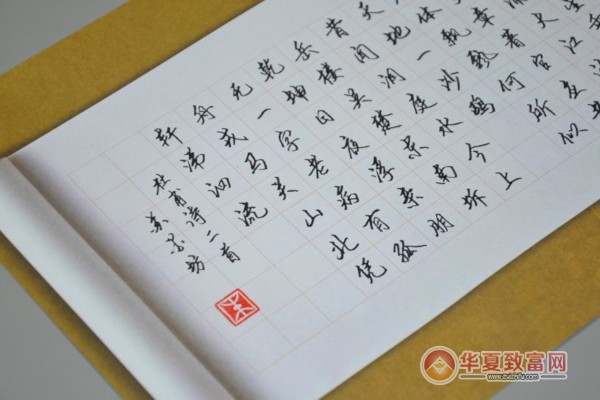 大江
章著官
休飘飘何所似
天地一沙鸥
昔闻洞庭水今上
岳楼吴楚东南坼
乾坤日夜浮亲朋
无一字老病有孤
舟戎马关山北凭
轩涕泗流
杜甫诗二首
苏墨坊
华夏致富网